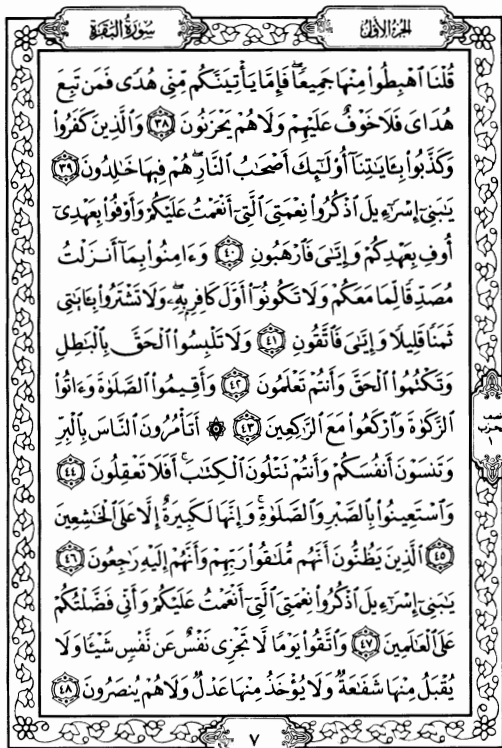 سورة البقرة
الجزء الأول
قُلْنَا ٱهْبِطُوا۟ مِنْهَا جَمِيعًا ۖ فَإِمَّا يَأْتِيَنَّكُم مِّنِّى هُدًى فَمَن تَبِعَ
هُدَاىَ فَلَا خَوْفٌ عَلَيْهِمْ وَلَا هُمْ يَحْزَنُونَ ٣٨ وَٱلَّذِينَ كَفَرُوا۟
وَكَذَّبُوا۟ بِـَٔايَـٰتِنَآ أُو۟لَـٰٓئِكَ أَصْحَـٰبُ ٱلنَّارِ ۖ هُمْ فِيهَا خَـٰلِدُونَ ٣٩
يَـٰبَنِىٓ إِسْرَٰٓءِيلَ ٱذْكُرُوا۟ نِعْمَتِىَ ٱلَّتِىٓ أَنْعَمْتُ عَلَيْكُمْ وَأَوْفُوا۟ بِعَهْدِىٓ
أُوفِ بِعَهْدِكُمْ وَإِيَّـٰىَ فَٱرْهَبُونِ ٤٠ وَءَامِنُوا۟ بِمَآ أَنزَلْتُ
مُصَدِّقًا لِّمَا مَعَكُمْ وَلَا تَكُونُوٓا۟ أَوَّلَ كَافِرٍۭ بِهِۦ ۖ وَلَا تَشْتَرُوا۟ بِـَٔايَـٰتِى
ثَمَنًا قَلِيلًا وَإِيَّـٰىَ فَٱتَّقُونِ ٤١ وَلَا تَلْبِسُوا۟ ٱلْحَقَّ بِٱلْبَـٰطِلِ
وَتَكْتُمُوا۟ ٱلْحَقَّ وَأَنتُمْ تَعْلَمُونَ ٤٢ وَأَقِيمُوا۟ ٱلصَّلَوٰةَ وَءَاتُوا۟
ٱلزَّكَوٰةَ وَٱرْكَعُوا۟ مَعَ ٱلرَّٰكِعِينَ ٤٣ ۞ أَتَأْمُرُونَ ٱلنَّاسَ بِٱلْبِرِّ
وَتَنسَوْنَ أَنفُسَكُمْ وَأَنتُمْ تَتْلُونَ ٱلْكِتَـٰبَ ۚ أَفَلَا تَعْقِلُونَ ٤٤
وَٱسْتَعِينُوا۟ بِٱلصَّبْرِ وَٱلصَّلَوٰةِ ۚ وَإِنَّهَا لَكَبِيرَةٌ إِلَّا عَلَى ٱلْخَـٰشِعِينَ
٤٥ ٱلَّذِينَ يَظُنُّونَ أَنَّهُم مُّلَـٰقُوا۟ رَبِّهِمْ وَأَنَّهُمْ إِلَيْهِ رَٰجِعُونَ ٤٦
يَـٰبَنِىٓ إِسْرَٰٓءِيلَ ٱذْكُرُوا۟ نِعْمَتِىَ ٱلَّتِىٓ أَنْعَمْتُ عَلَيْكُمْ وَأَنِّى فَضَّلْتُكُمْ
عَلَى ٱلْعَـٰلَمِينَ ٤٧ وَٱتَّقُوا۟ يَوْمًا لَّا تَجْزِى نَفْسٌ عَن نَّفْسٍ شَيْـًٔا وَلَا
يُقْبَلُ مِنْهَا شَفَـٰعَةٌ وَلَا يُؤْخَذُ مِنْهَا عَدْلٌ وَلَا هُمْ يُنصَرُونَ ٤٨
نصف
الحزب
١
٧